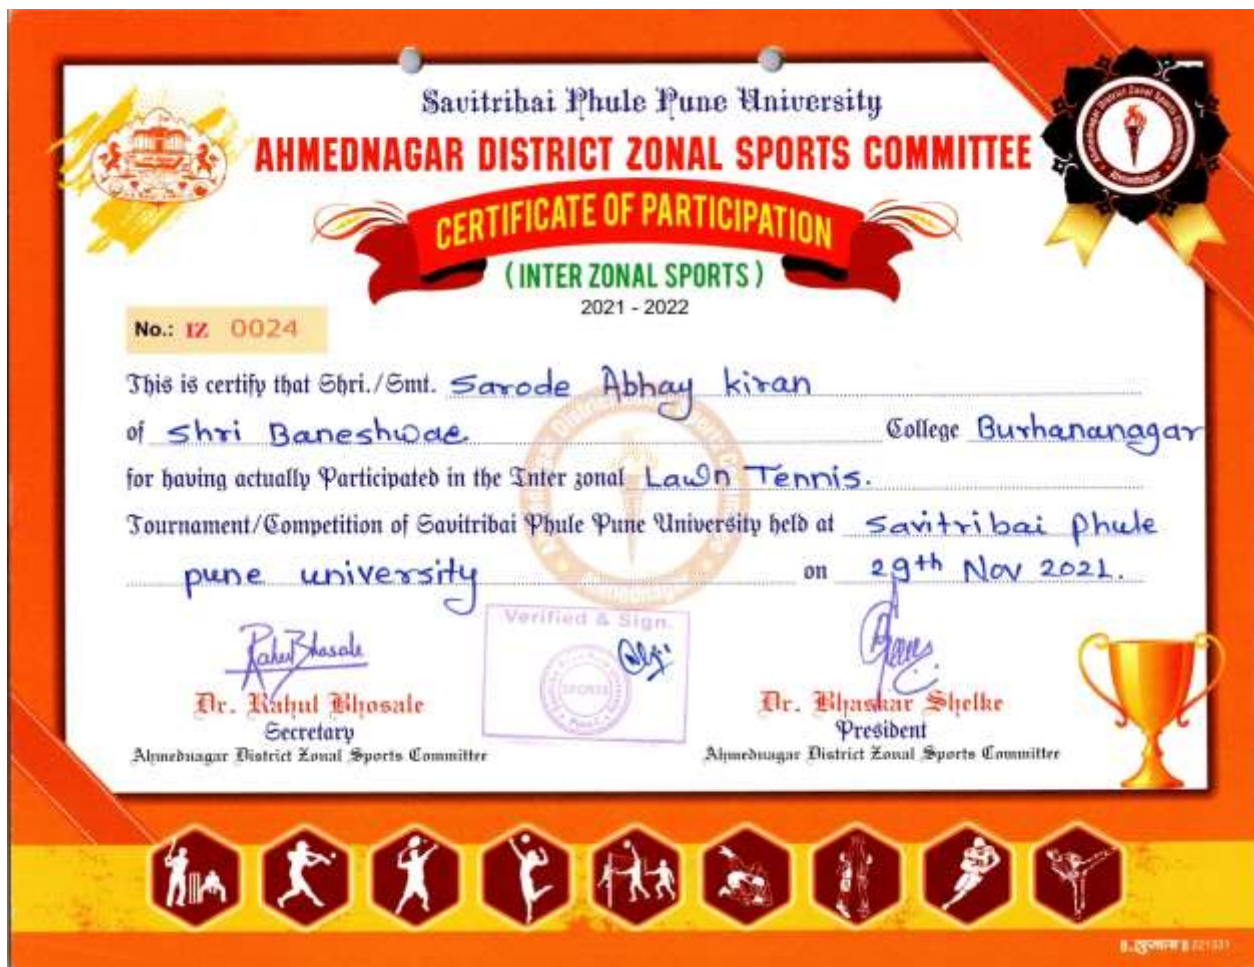 Savitribai Phule Pune University
AHMEDNAGAR DISTRICT ZONAL SPORTS COMMITTEE
Ahmednagar District Zonal Sports Committee
Ahmednagar
CERTIFICATE OF PARTICIPATION
( INTER ZONAL SPORTS )
2021 - 2022
No.: IZ 0024
This is certify that Shri./Smt. Sarode Abhay kiran
of Shri Baneshwae College Burhananagar
for having actually Participated in the Inter zonal Lawn Tennis.
Tournament/Competition of Savitribai Phule Pune University held at Savitribai phule
pune university on 29th Nov 2021.
Verified & Sign.
SPORTS
Rahul Bhosale
Dr. Rahul Bhosale
Secretary
Ahmednagar District Zonal Sports Committee
Dr. Bhaskar Shelke
President
Ahmednagar District Zonal Sports Committee